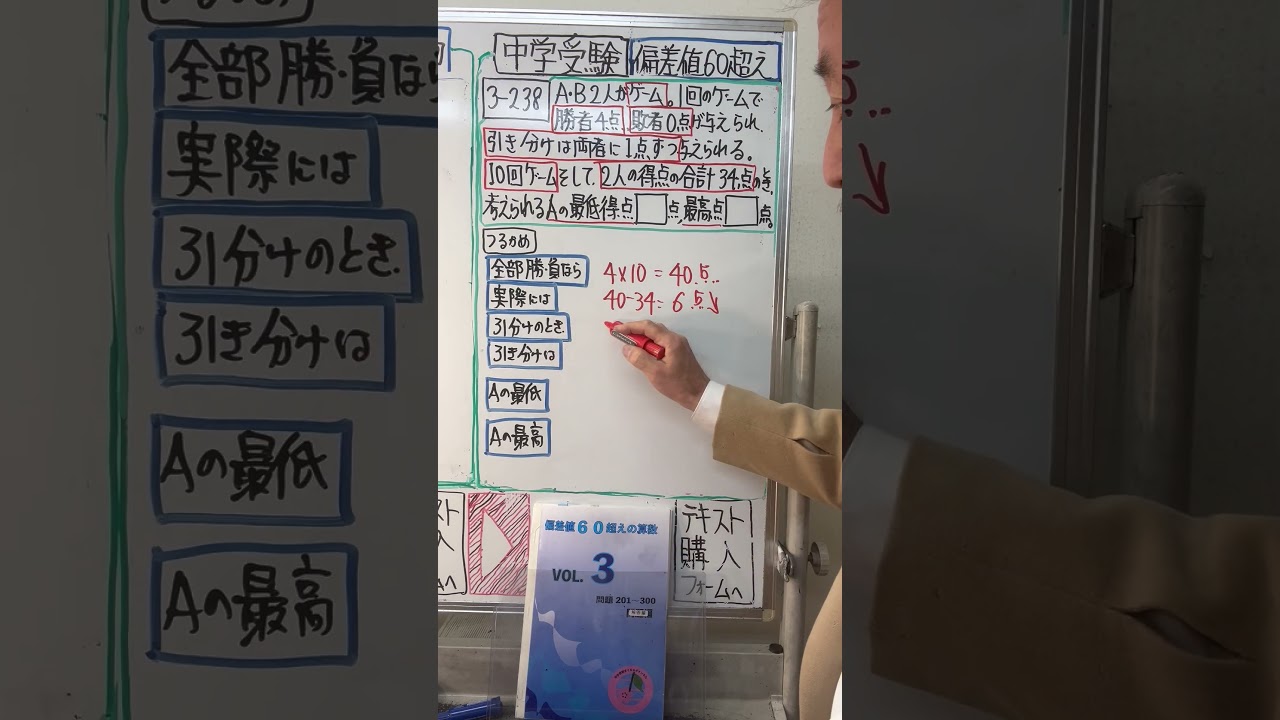 中学受験 偏差値60超え
3-238 A・B2人がゲーム。1回のゲームで
勝者4点 敗者0点が与えられ、
引き分けは両者に1点ずつ与えられる。
10回ゲームをして、2人の得点の合計34点のとき、
考えられるAの最低得点□点 最高点□点。
つるかめ
全部勝・負なら 4×10=40点..
実際には 40-34=6点↘
引分けのとき
引き分けは
Aの最低
Aの最高
テキスト
購入
フォームへ
偏差値60超えの算数
VOL. 3
問題 201-300
全部勝・負なら
実際には
引分けのとき
引き分けは
Aの最低
Aの最高